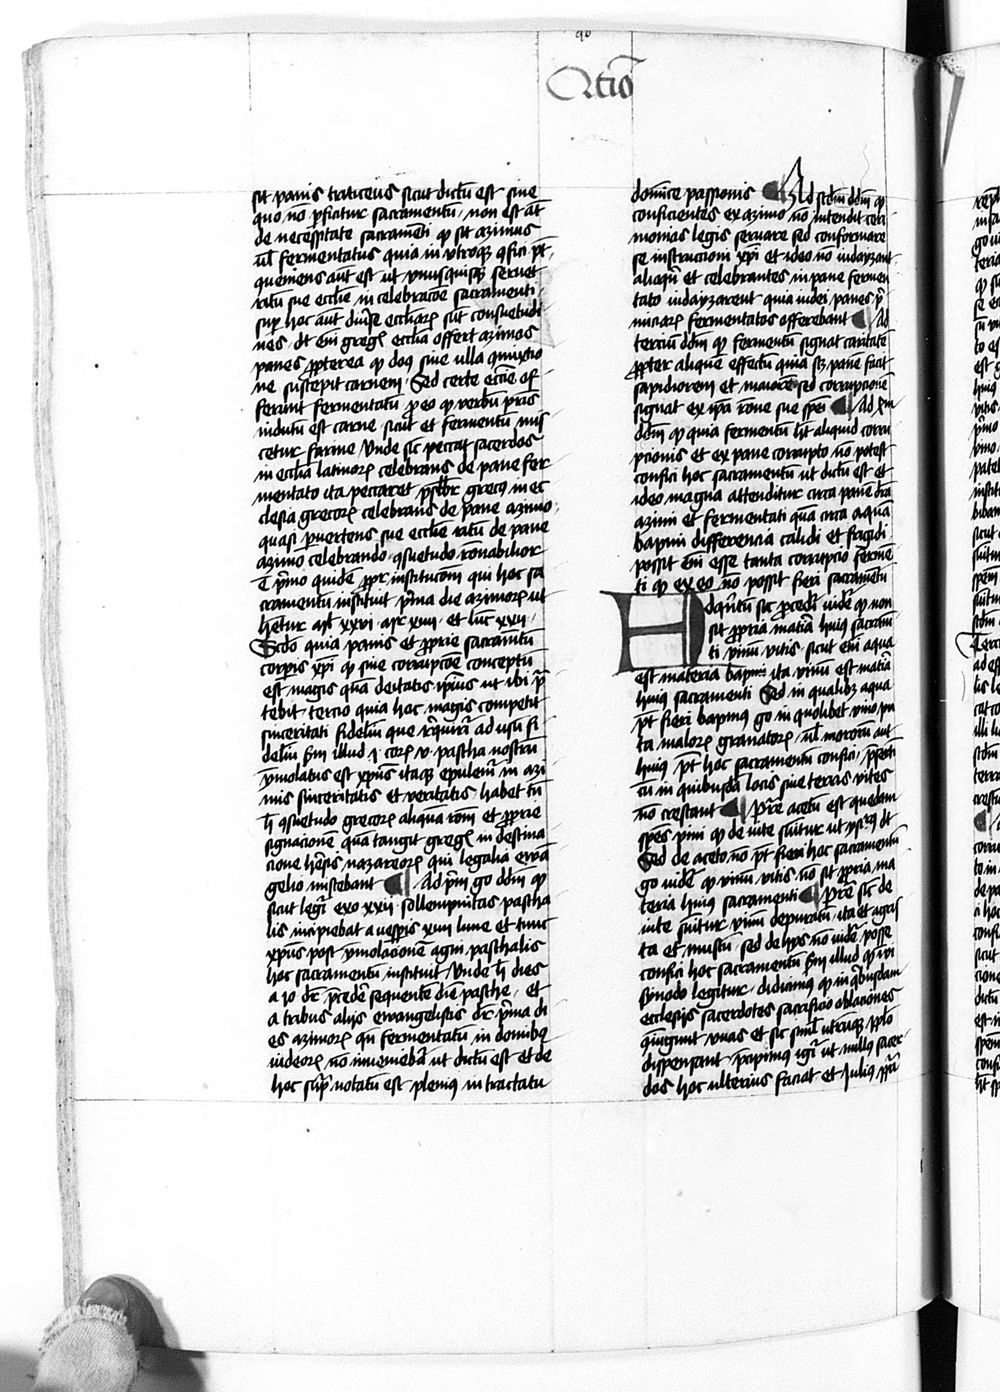 Qctio
sit panis triticeus sicut dictū est sine
quo nō p̄ficiatur sacramentū · non est aūt
de necessitate sacramēti ꝙ sit azimus
ul̄ fermentatus quia in vtroqꝫ ꝯfici pt̄ ·
ꝯueniens aūt est ut vnusquisqꝫ seruet
ritū sue ecclie in celebracōe sacramenti ·
sup̄ hoc aut diuse eccliaꝝ sūt consuetudi
nes · dt̄ em̄ greg᷑ ecclia offert azimos
panes ꝓpterea ꝙ dn̄s sine ulla ꝯmixtio
ne suscepit carnem · Sed certe ecclie of
ferūt fermentatū ꝓ eo ꝙ verbū pr̄is
indutū est carne sicut et fermentū mis
cetur farine Unde sic̄ peccat sacerdos
in ecclia latinoꝝ celebrans de pane fer
mentato ita peccaret pr̄sbr̄ grecꝰ in ec
clesia grecoꝝ celebrans de pane azimo ·
quasi ꝑuertens sue ecclie ritū de pane
azimo celebrando · ꝯsuetudo rōnabilior
ē p̄mo quidē ꝓpr̄ institucōm qui hoc sa
cramentū instituit p̄ma die azimoꝝ ut
hetur mt̄ xxvi · mr̄ xiiii · et luc̄ xxii ·
Scd̄o quia panis et ꝓprie sacramtū
corp̄is xp̄i ꝙ sine corrupcōe conceptū
est magis quā deitatis ip̄ius ut ibi p̄
tebit · tercio quia hoc magis competit
sinceritati fidelīū que rq̄uirī ad usū fi
deliū s̄m illud i coꝝ v · pascha nostrū
ȳmolatus est xp̄us itaqꝫ epulemᷣ in azi
mis sinceritatis et veritatis · habet tn̄
h̄ ꝯsuetudo grecoꝝ aliqua rōm et ꝓprie
signacionē quā tangit greg᷑ in destina
cione hr̄esis nazareoꝝ qui legalia ewā
gelio miscebant Ad p̄m go dd̄m ꝙ
sicut legit̄ exo xxii · sollempnitas pascha
lis incipiebat a vesp̄is xiiii lune et tunc
xp̄us post ȳmolacionē agni paschalis
hoc sacramentū instituit · Unde h̄ dies
a io dr̄ p̄cedē sequentē diē pasche · et
a tribus alijs ewangelistis dr̄ p̄ma di
es azimoꝝ qn̄ fermentatū in domibꝰ
iudeoꝝ nō inueniebāt ut dictū est et de
hoc sup̄ notatū est pleniꝰ in tractatu
domīce passionis Ad scd̄m dd̄m ꝙ
conficientes ex azimo nō intendit ceri
monias legis seruare sed conformare
se institucioni xp̄i et ideo nō iudayzant
alioqn̄ et celebrantes in pane fermen
tato iudayzarent quia iudei panes p̄
miciaꝝ fermentatos offerebant Ad
terciū dd̄m ꝙ fermentū signat caritatē
ꝓpter aliquē effectū quia sꝫ panē facit
sapidiorem et maiorē sed corrupcionē
signat ex ip̄a rōne sue spei Ad xm̄
dd̄m ꝙ quia fermentū ht̄ aliquid corru
pcionis et ex pane corrupto nō potest
confici hoc sacramentū ut dictū est et
ideo magna attenditur circa panē dr̄a
azimi et fermentati quā circa aquā
bapmi differencia calidi et frigidi
possit em̄ esse tanta corrupcio fermē
ti ꝙ ex eo nō possit fieri sacramētū
Adqr̄tū sic ꝓcedit̄ uidet̄ ꝙ non
sit ꝓpria matīa huiꝰ sacram̄
ti vinū vitis · sicut em̄ aqua
est materia bapmi ita vinū est matīa
huiꝰ sacramenti Sed in qualibꝫ aqua
pt̄ fieri bapmus go in quolibet vino pu
ta maloꝝ granatoꝝ · ul̄ mororū aut
huiꝰ pt̄ hoc sacramentū confici · p̄serti
cū in quibusdā locis siue terris vites
nō crescant Pret̄ acetū est quedam
spēs vini ꝙ de vite sumitur ut ysid᷑ dt̄
Sed de aceto nō pt̄ fieri hoc sacramentū
go uidet̄ ꝙ vinū vitis nō sit ꝓpria ma
teria huiꝰ sacramenti Pret̄ sic̄ de
vite sumitur vinū depuratū · ita et agres
ta et mustū · sed de hijs nō uidet̄ posse
confici hoc sacramentū s̄m illud ꝙ in vi
synodo legitur · didicimꝰ ꝙ in q̄busdam
ecclesijs sacerdotes sacrificio oblaciones
ꝯiungunt vuas et sic simul utrūqꝫ ppl̄o
dispensant p̄cipimꝰ igit̄ ut nullꝰ sacer
dos hoc ulterius faciat et Julius ppā